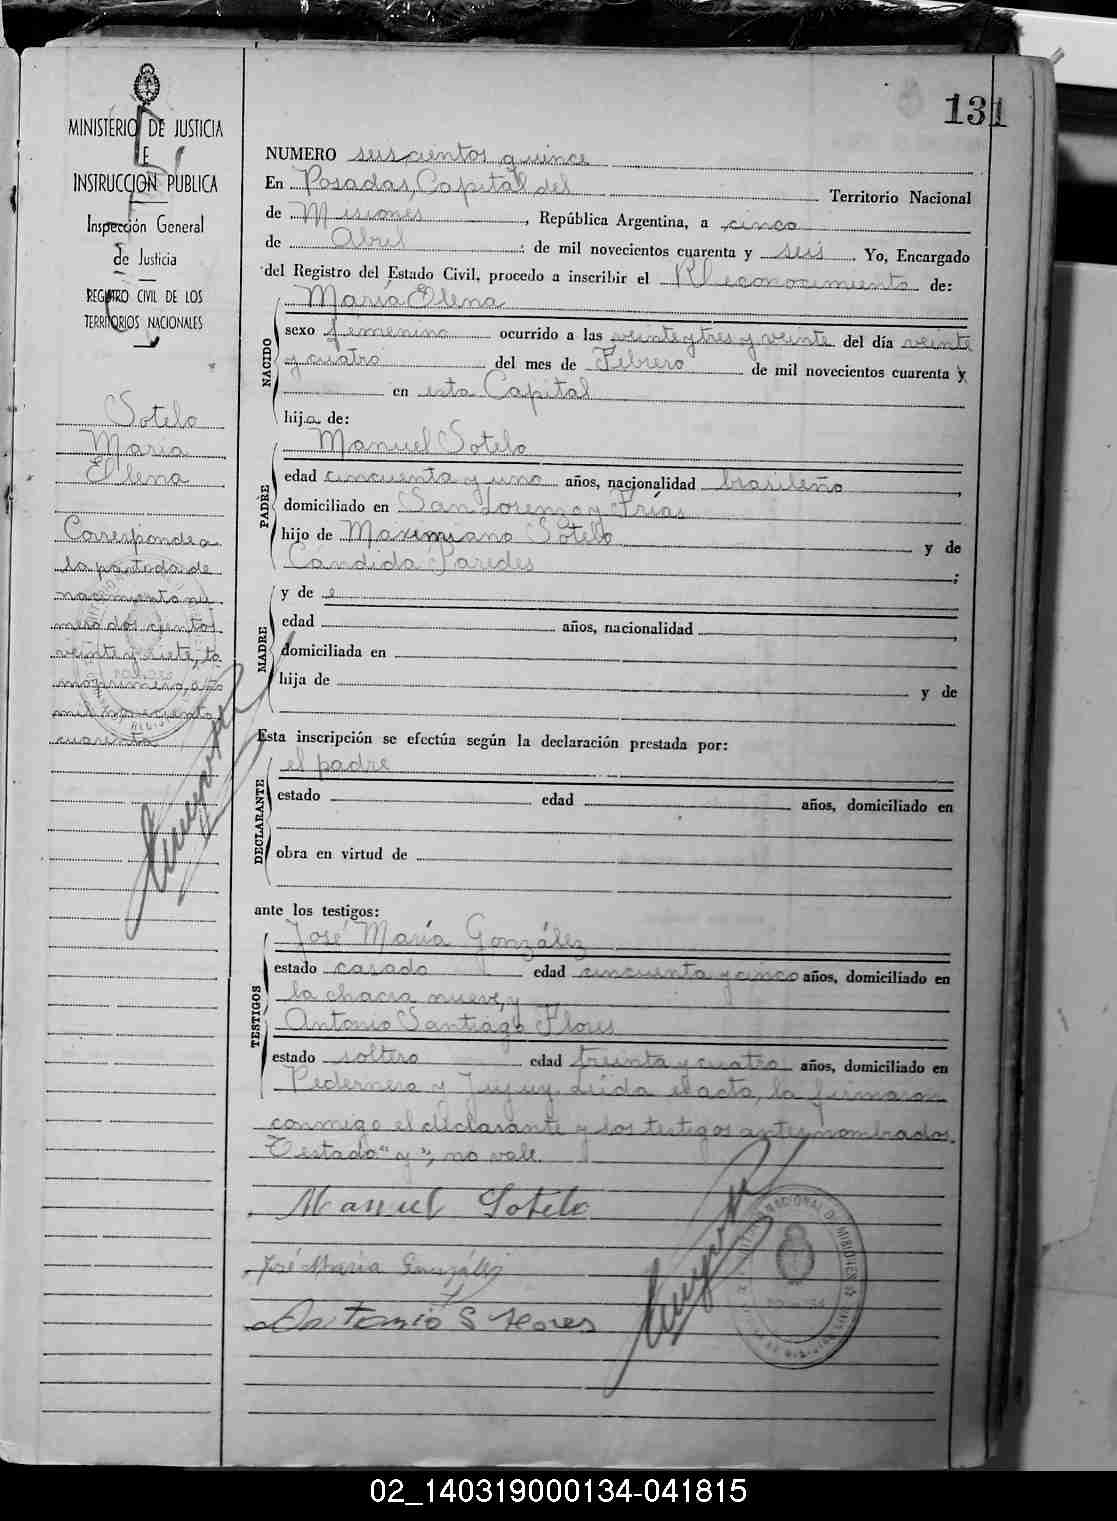 131
MINISTERIO DE JUSTICIA
E
INSTRUCCION PUBLICA
Inspección General
de Justicia
REGISTRO CIVIL DE LOS
TERRITORIOS NACIONALES
Sotelo
María
Elena
Corresponde a
la partida de
nacimiento nú
mero dos cientos
veinte y siete, to
mo primero, año
mil novecientos
cuarenta
NUMERO seiscientos quince
En Posadas, Capital del Territorio Nacional
de Misiones, República Argentina, a cinco
de Abril de mil novecientos cuarenta y seis. Yo, Encargado
del Registro del Estado Civil, procedo a inscribir el Reconocimiento de:
NACIDO
María Elena
sexo femenino ocurrido a las veinte y tres y veinte del día veinte
y cuatro del mes de Febrero de mil novecientos cuarenta y
en esta Capital
hija de:
PADRE
Manuel Sotelo
edad cincuenta y uno años, nacionalidad brasileño,
domiciliado en San Lorenzo y Frías
hijo de Maximiano Sotelo y de
Cándida Paredes;
MADRE
y de
edad años, nacionalidad ,
domiciliada en
hija de y de
Esta inscripción se efectúa según la declaración prestada por:
DECLARANTE
el padre
estado edad años, domiciliado en
obra en virtud de
ante los testigos:
TESTIGOS
José María González
estado casado edad cincuenta y cinco años, domiciliado en
la chacra nueve, y
Antonio Santiago Flores
estado soltero edad treinta y cuatro años, domiciliado en
Pedernera y Jujuy. Leída el acta, la firmaron
conmigo el declarante y los testigos antes nombrados.
Testado "y", no vale.
Manuel Sotelo
José María González
Antonio S Flores
02_140319000134-041815